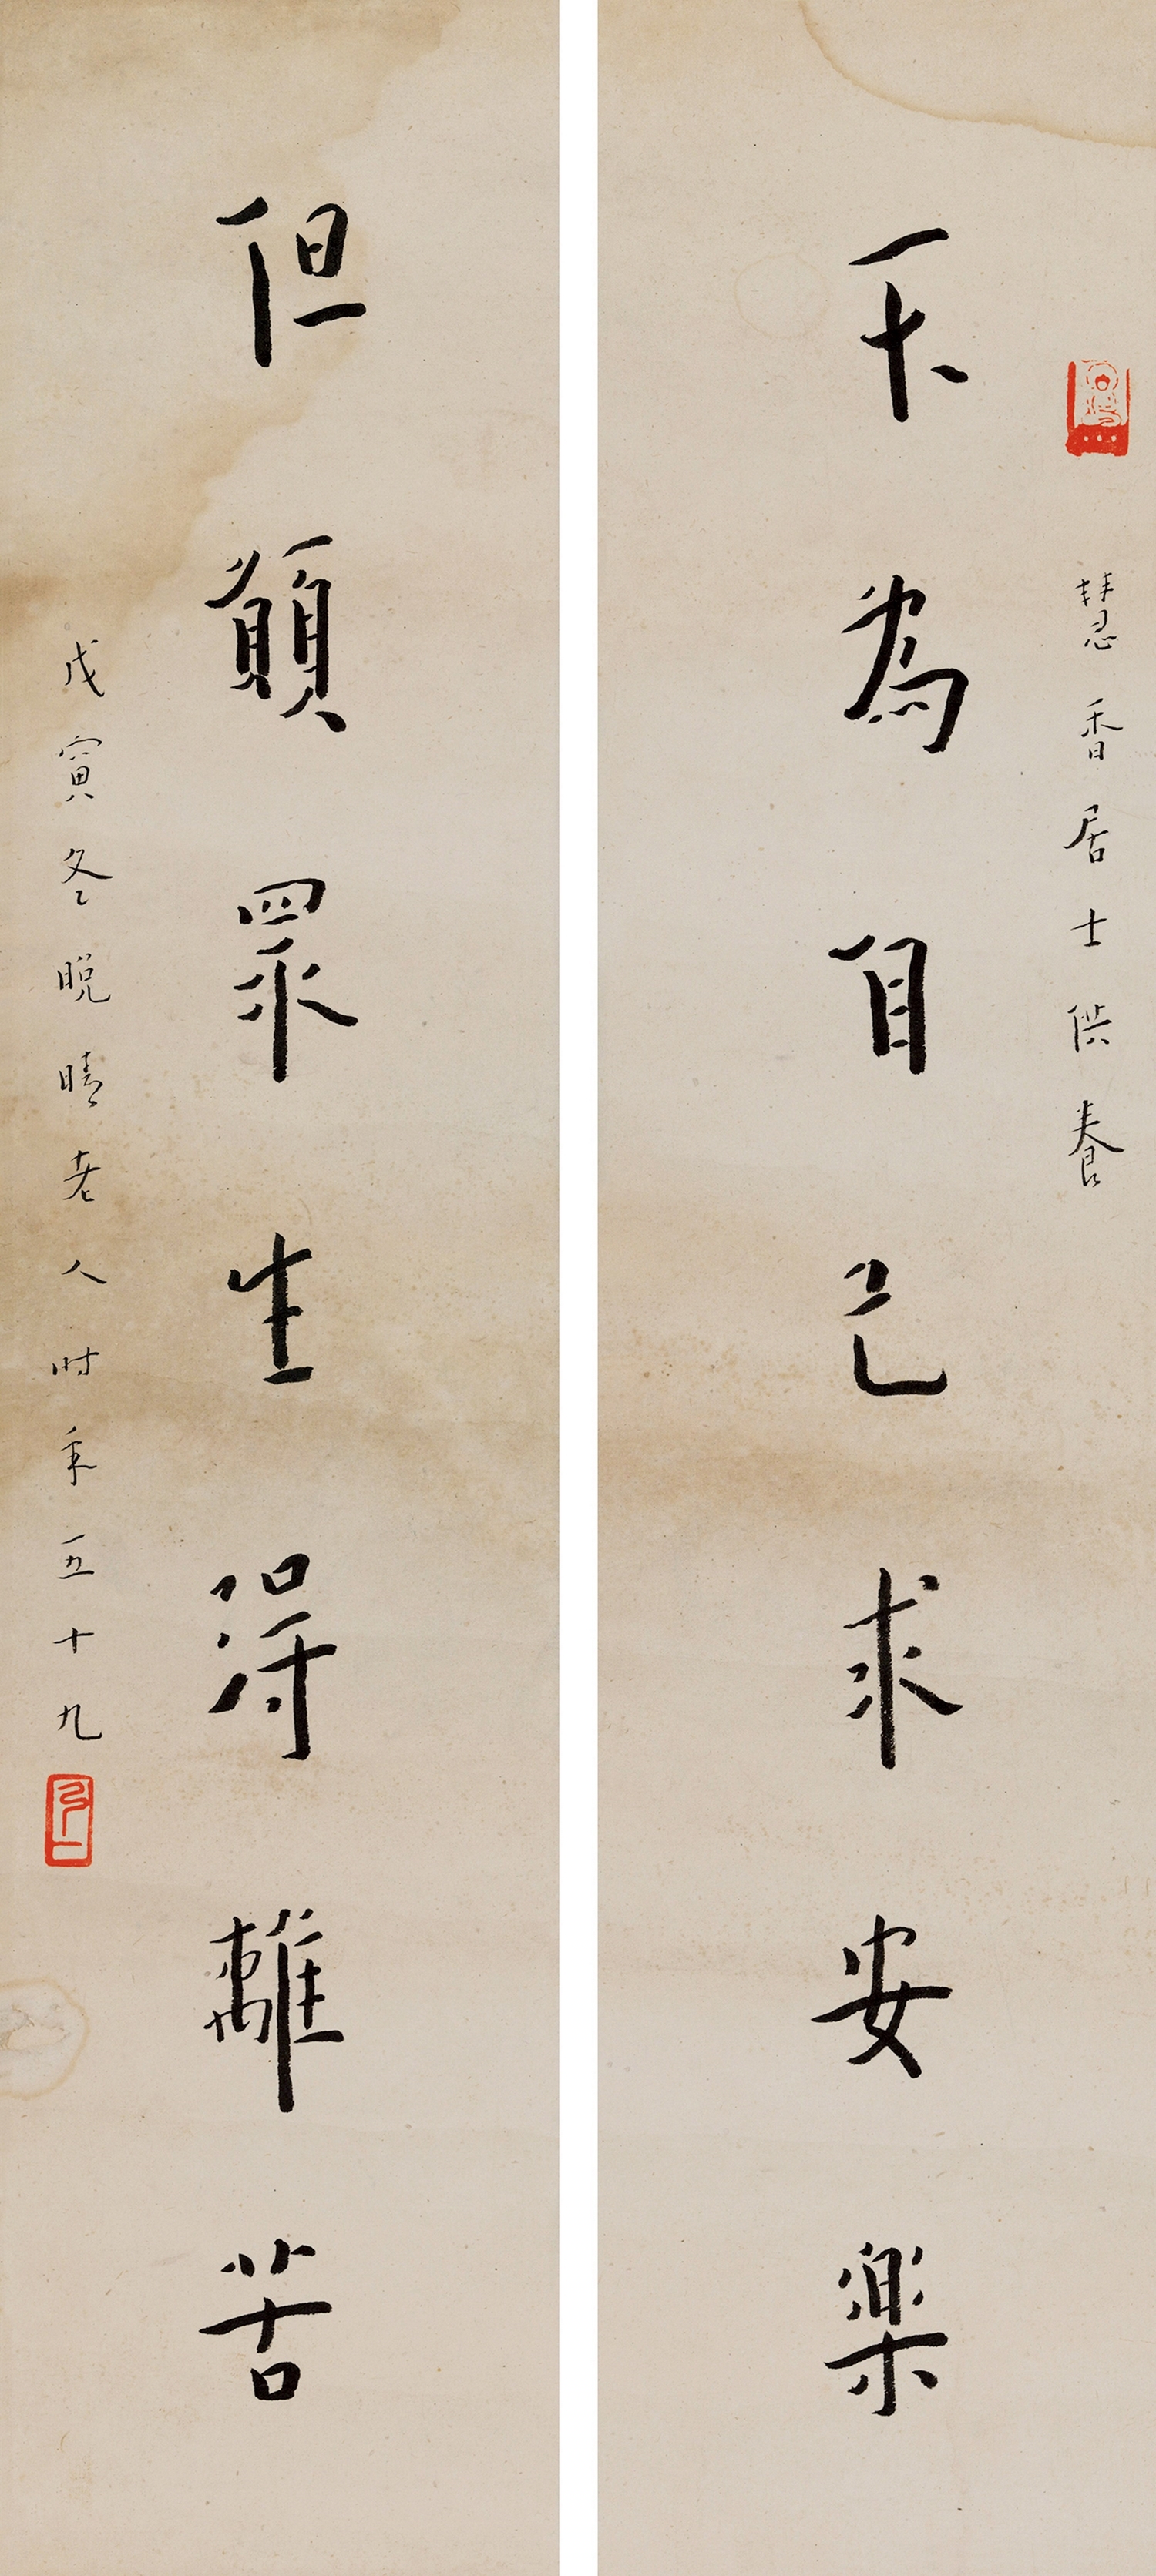 慧香居士供養
不為自己求安樂
但願眾生得離苦
戊寅冬晚晴老人時年五十九